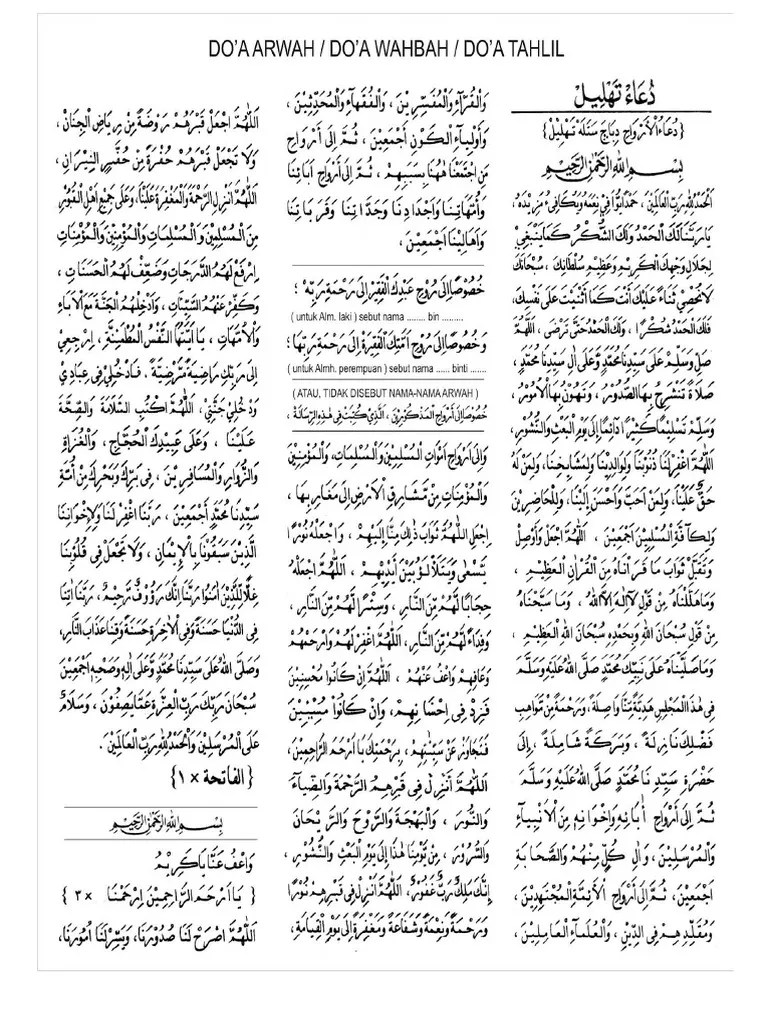 DO'A ARWAH / DO'A WAHBAH / DO'A TAHLIL
دُعَاءْ تَهْلِيلْ
{دُعَاءُ الْأَرْوَاحِ دِبَاچَ سَتَلَهْ تَهْلِيْلْ}
بِسْمِ اللهِ الرَّحْمٰنِ الرَّحِيْمِ
اَلْحَمْدُ لِلّٰهِ رَبِّ الْعَالَمِيْنَ، حَمْدًا يُوَافِيْ نِعَمَهُ وَيُكَافِىءُ مَزِيْدَهُ،
يَا رَبَّنَا لَكَ الْحَمْدُ وَلَكَ الشُّكْرُ كَمَا يَنْبَغِيْ
لِجَلَالِ وَجْهِكَ الْكَرِيْمِ وَعَظِيْمِ سُلْطَانِكَ، سُبْحَانَكَ
لَا نُحْصِيْ ثَنَاءً عَلَيْكَ أَنْتَ كَمَا أَثْنَيْتَ عَلَى نَفْسِكَ،
فَلَكَ الْحَمْدُ شُكْرًا، وَلَكَ الْحَمْدُ حَتَّى تَرْضَى، اَللّٰهُمَّ
صَلِّ وَسَلِّمْ عَلَى سَيِّدِنَا مُحَمَّدٍ وَّعَلَى اٰلِ سَيِّدِنَا مُحَمَّدٍ،
صَلَاةً تَنْشَرِحُ بِهَا الصُّدُوْرُ، وَتَهُوْنُ بِهَا الْأُمُوْرُ،
وَسَلِّمْ تَسْلِيْمًا كَثِيْرًا دَائِمًا إِلَى يَوْمِ الْبَعْثِ وَالنُّشُوْرِ،
اَللّٰهُمَّ اغْفِرْ لَنَا ذُنُوْبَنَا وَلِوَالِدِيْنَا وَلِمَشَايِخِنَا، وَلِمَنْ لَهُ
حَقٌّ عَلَيْنَا، وَلِمَنْ أَحَبَّ وَأَحْسَنَ إِلَيْنَا، وَلِلْحَاضِرِيْنَ
وَلِكَافَّةِ الْمُسْلِمِيْنَ أَجْمَعِيْنَ، اَللّٰهُمَّ اجْعَلْ وَأَوْصِلْ
وَتَقَبَّلْ ثَوَابَ مَا قَرَأْنَاهُ مِنَ الْقُرْاٰنِ الْعَظِيْمِ،
وَمَا هَلَّلْنَاهُ مِنْ قَوْلِ لَا إِلٰهَ إِلَّا اللهُ، وَمَا سَبَّحْنَاهُ
مِنْ قَوْلِ سُبْحَانَ اللهِ وَبِحَمْدِهِ سُبْحَانَ اللهِ الْعَظِيْمِ،
وَمَا صَلَّيْنَاهُ عَلَى نَبِيِّكَ مُحَمَّدٍ صَلَّى اللهُ عَلَيْهِ وَسَلَّمَ
فِى هٰذَا الْمَجْلِسِ هَدِيَّةً مِّنَّا وَاصِلَةً، وَرَحْمَةً مِنْ مَوَاهِبِ
فَضْلِكَ نَازِلَةً، وَبَرَكَةً شَامِلَةً، إِلَى
حَضْرَةِ سَيِّدِنَا مُحَمَّدٍ صَلَّى اللهُ عَلَيْهِ وَسَلَّمَ
ثُمَّ إِلَى أَرْوَاحِ اٰبَائِهِ وَإِخْوَانِهِ مِنَ الْأَنْبِيَاءِ
وَالْمُرْسَلِيْنَ، وَاٰلِ كُلٍّ مِنْهُمْ وَالصَّحَابَةِ
أَجْمَعِيْنَ، ثُمَّ إِلَى أَرْوَاحِ الْأَئِمَّةِ الْمُجْتَهِدِيْنَ،
وَمُقَلِّدِيْهِمْ فِى الدِّيْنِ، وَالْعُلَمَاءِ الْعَامِلِيْنَ،
وَالْقُرَّاءِ وَالْمُفَسِّرِيْنَ، وَالْفُقَهَاءِ وَالْمُحَدِّثِيْنَ،
وَأَوْلِيَاءِ الْكَوْنِ أَجْمَعِيْنَ، ثُمَّ إِلَى أَرْوَاحِ
مَنِ اجْتَمَعْنَا هٰهُنَا بِسَبَبِهِمْ، ثُمَّ إِلَى أَرْوَاحِ اٰبَائِنَا
وَأُمَّهَاتِنَا وَأَجْدَادِنَا وَجَدَّاتِنَا وَقَرَابَاتِنَا
وَأَهَالِيْنَا أَجْمَعِيْنَ،
خُصُوْصًا إِلَى رُوْحِ عَبْدِكَ الْفَقِيْرِ إِلَى رَحْمَةِ رَبِّهِ،
( untuk Alm. laki ) sebut nama ........ bin .........
وَخُصُوْصًا إِلَى رُوْحِ أَمَتِكَ الْفَقِيْرَةِ إِلَى رَحْمَةِ رَبِّهَا،
(untuk Almh. perempuan ) sebut nama ...... binti .......
(ATAU, TIDAK DISEBUT NAMA-NAMA ARWAH )
خُصُوْصًا إِلَى أَرْوَاحِ الْمَذْكُوْرِيْنَ، الَّذِيْ كُتِبَتْ فِى هٰذِهِ الرِّسَالَةِ،
وَإِلَى أَرْوَاحِ أَمْوَاتِ الْمُسْلِمِيْنَ وَالْمُسْلِمَاتِ، وَالْمُؤْمِنِيْنَ
وَالْمُؤْمِنَاتِ مِنْ مَشَارِقِ الْأَرْضِ إِلَى مَغَارِبِهَا،
اِجْعَلِ اللّٰهُمَّ ثَوَابَ ذٰلِكَ مِنَّا إِلَيْهِمْ، وَاجْعَلْهُ نُوْرًا
يَّسْعَى وَيَتَلَأْلَؤُ بَيْنَ أَيْدِيْهِمْ، اَللّٰهُمَّ اجْعَلْهُ
حِجَابًا لَّهُمْ مِّنَ النَّارِ، وَسِتْرًا لَّهُمْ مِّنَ النَّارِ،
وَفِدَاءً لَّهُمْ مِّنَ النَّارِ، اَللّٰهُمَّ اغْفِرْ لَهُمْ وَارْحَمْهُمْ
وَعَافِهِمْ وَاعْفُ عَنْهُمْ، اَللّٰهُمَّ إِنْ كَانُوْا مُحْسِنِيْنَ
فَزِدْ فِى إِحْسَانِهِمْ، وَإِنْ كَانُوْا مُسِيْئِيْنَ
فَتَجَاوَزْ عَنْ سَيِّئَاتِهِمْ، بِرَحْمَتِكَ يَا أَرْحَمَ الرَّاحِمِيْنَ،
اَللّٰهُمَّ أَنْزِلْ فِى قَبْرِهِمُ الرَّحْمَةَ وَالضِّيَاءَ
وَالنُّوْرَ، وَالْبَهْجَةَ وَالرَّوْحَ وَالرَّيْحَانَ
وَالسُّرُوْرَ، مِنْ يَوْمِنَا هٰذَا إِلَى يَوْمِ الْبَعْثِ وَالنُّشُوْرِ،
إِنَّكَ مَلِكٌ رَبٌّ غَفُوْرٌ، اَللّٰهُمَّ أَنْزِلْ فِى قَبْرِهِمْ نُوْرًا
وَرَحْمَةً وَنِعْمَةً وَشَفَاعَةً وَمَغْفِرَةً إِلَى يَوْمِ الْقِيَامَةِ،
اَللّٰهُمَّ اجْعَلْ قَبْرَهُمْ رَوْضَةً مِنْ رِيَاضِ الْجِنَانِ،
وَلَا تَجْعَلْ قَبْرَهُمْ حُفْرَةً مِنْ حُفَرِ النِّيْرَانِ،
اَللّٰهُمَّ أَنْزِلِ الرَّحْمَةَ وَالْمَغْفِرَةَ عَلَيْنَا، وَعَلَى جَمِيْعِ أَهْلِ الْقُبُوْرِ
مِنَ الْمُسْلِمِيْنَ وَالْمُسْلِمَاتِ وَالْمُؤْمِنِيْنَ وَالْمُؤْمِنَاتِ
اِرْفَعْ لَهُمُ الدَّرَجَاتِ وَضَعِّفْ لَهُمُ الْحَسَنَاتِ،
وَكَفِّرْ عَنْهُمُ السَّيِّئَاتِ، وَأَدْخِلْهُمُ الْجَنَّةَ مَعَ الْاٰبَاءِ
وَالْأُمَّهَاتِ، يَا أَيَّتُهَا النَّفْسُ الْمُطْمَئِنَّةُ، اِرْجِعِيْ
إِلَى رَبِّكِ رَاضِيَةً مَّرْضِيَّةً، فَادْخُلِيْ فِى عِبَادِيْ
وَادْخُلِيْ جَنَّتِيْ، اَللّٰهُمَّ اكْتُبِ السَّلَامَةَ وَالصِّحَّةَ
عَلَيْنَا، وَعَلَى عَبِيْدِكَ الْحُجَّاجِ، وَالْغُزَاةِ
وَالزُّوَّارِ وَالْمُسَافِرِيْنَ، فِى بَرِّكَ وَبَحْرِكَ مِنْ أُمَّةِ
سَيِّدِنَا مُحَمَّدٍ أَجْمَعِيْنَ، رَبَّنَا اغْفِرْ لَنَا وَلِإِخْوَانِنَا
الَّذِيْنَ سَبَقُوْنَا بِالْإِيْمَانِ، وَلَا تَجْعَلْ فِى قُلُوْبِنَا
غِلًّا لِّلَّذِيْنَ اٰمَنُوْا رَبَّنَا إِنَّكَ رَؤُوْفٌ رَّحِيْمٌ، رَبَّنَا اٰتِنَا
فِى الدُّنْيَا حَسَنَةً وَّفِى الْاٰخِرَةِ حَسَنَةً وَّقِنَا عَذَابَ النَّارِ،
وَصَلَّى اللهُ عَلَى سَيِّدِنَا مُحَمَّدٍ وَّعَلَى اٰلِهِ وَصَحْبِهِ أَجْمَعِيْنَ
سُبْحَانَ رَبِّكَ رَبِّ الْعِزَّةِ عَمَّا يَصِفُوْنَ، وَسَلَامٌ
عَلَى الْمُرْسَلِيْنَ وَالْحَمْدُ لِلّٰهِ رَبِّ الْعَالَمِيْنَ.
{الفاتحة × ١}
بِسْمِ اللهِ الرَّحْمٰنِ الرَّحِيْمِ
وَاعْفُ عَنَّا يَا كَرِيْمُ
{ يَا أَرْحَمَ الرَّاحِمِيْنَ اِرْحَمْنَا ×٣ }
اَللّٰهُمَّ اشْرَحْ لَنَا صُدُوْرَنَا، وَيَسِّرْ لَنَا أُمُوْرَنَا،